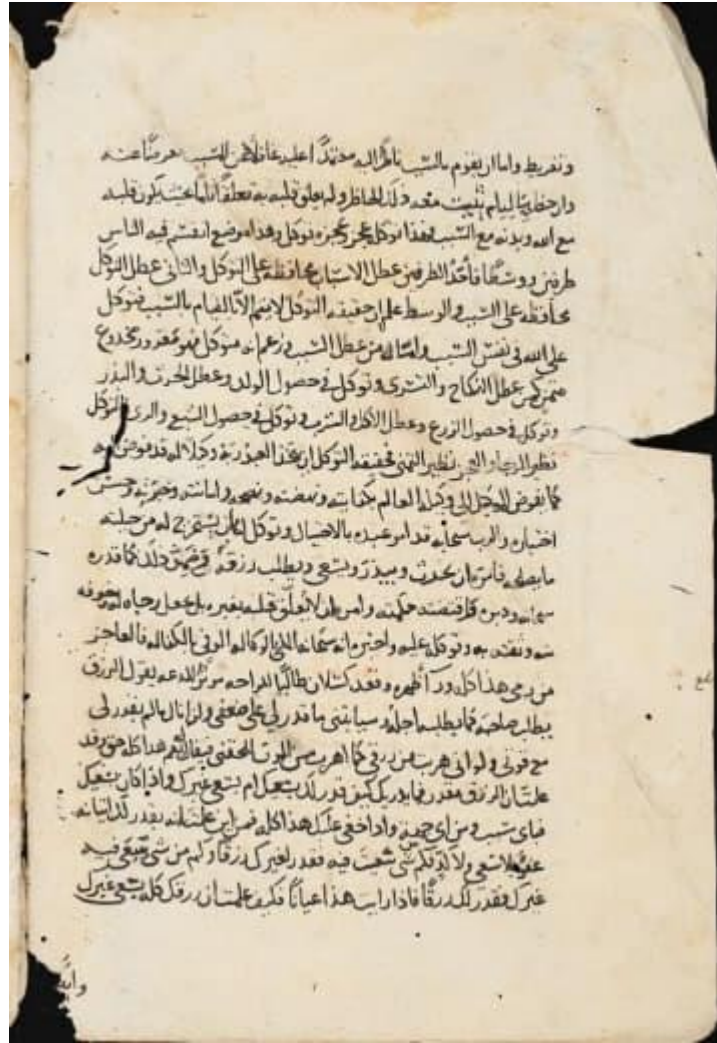 وتفريط واما ان يقوم بالسبب ناظرًا اليه معتمدًا عليه غافلًا عن المسبب معرضًا عنه
وان خطر بباله لم يثبت معه ذلك الخاطر ولم يعلق قلبه به تعلقًا تامًا بحيث يكون قلبه
مع الله وبدنه مع السبب فهذا توكله عجز وعجزه توكل وهذا موضع انقسم فيه الناس
طرفين ووسطًا فاحد الطرفين عطل الاسباب محافظة على التوكل والثاني عطل التوكل
محافظة على السبب والوسط علم ان حقيقة التوكل لا يتم الا بالقيام بالسبب فتوكل
على الله في نفس السبب واما من عطل السبب وزعم انه متوكل فهو مغرور مخدوع
متمن كمن عطل النكاح والتسري وتوكل في حصول الولد وعطل الحرث والبذر
وتوكل في حصول الزرع وعطل الاكل والشرب وتوكل في حصول الشبع والري فالتوكل
نظير الرجا والعجز نظير التمني فحقيقة التوكل ان يتخذ العبد ربه وكيلا له قد فوض اليه
كما يفوض الموكل الى وكيله العالم بكفايته ونهضته ونصحه وامانته وخبرته وحسن
اختياره والرب سبحانه قد امر عبده بالاحتيال وتوكل له ان يستخرج له من حيلته
ما يصلحه فامره ان يحرث ويبذر ويسعى ويطلب رزقه في ضمن ذلك كما قدره
سبحانه ودبره واقتضته حكمته وامره ان لا يعلق قلبه بغيره بل يجعل رجاه له وخوفه
منه وثقته به وتوكله عليه واخبره انه سبحانه الملي بالوكاله الوفي بالكفاله فالعاجز
من رمى هذا كله ورآ ظهره وقعد كسلان طالبًا للراحه موثرًا للدعه يقول الرزق
يطلب صاحبه كما يطلبه اجله وسياتيني ما قدر لي على ضعفي ولن انال ما لم يقدر لي
مع قوتي ولو اني هربت من رزقي كما اهرب من الموت للحقني فيقال له نعم هذا كله حق وقد
علمت ان الرزق مقدر فما يدريك كيف قدر لك بسعيك ام بسعي غيرك واذا كان بسعيك
فباي سبب ومن اي وجه واذا خفي عليك هذا كله فمن اين علمت انه يقدر لك اتيانه
عفوًا بلا سعي ولا كد فكم من شي سعيت فيه فقدر لغيرك رزقًا وكم من شي سعى فيه
غيرك فقدر لك رزقًا فاذا رايت هذا عيانًا فكيف علمت ان رزقك كله بسعي غيرك